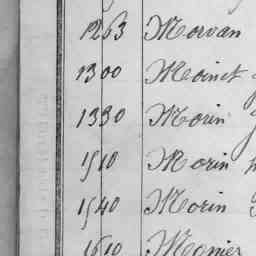 1263 Morvan
1300 Moinet
1330 Morin
1510 Morin
1540 Morin
1610 Monier